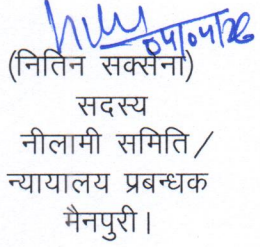 04/04/26
(नितिन सक्सेना)
सदस्य
नीलामी समिति /
न्यायालय प्रबन्धक
मैनपुरी।